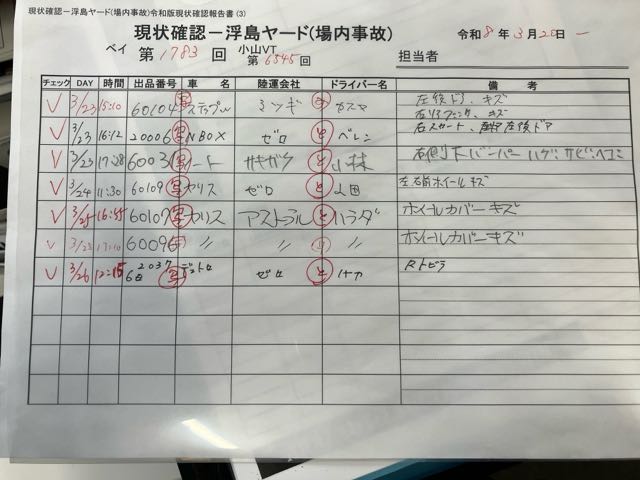 現状確認ー浮島ヤード(場内事故)令和版現状確認報告書 (3)
現状確認ー浮島ヤード(場内事故) 令和 8 年 3 月 20 日 ー
ベイ 第 1783 回 小山VT 第 6545 回 担当者
チェック DAY 時間 出品番号 車 名 陸運会社 ドライバー名 備 考
✓ 3/23 15:10 60104 写 ミツギ と 左後ドア、キズ
左リアフェンダ、キズ
✓ 3/23 16:12 20006 写 NBOX ゼロ と ベレン 右スカート、左後ドア
✓ 3/23 17:28 6003 写 ノート サキガケ と 小林 右側下バーパー ハゲ、サビ、ヘコミ
✓ 3/24 11:30 60109 写 ヤリス ゼロ と 左右前ホイールキズ
✓ 3/25 16:55 60107 写 ヤリス アストラル と ハラダ ホイールカバーキズ
✓ 60096 〃 〃 〃 ホイールカバーキズ
✓ 3/26 12:15 2037 写 デュトロ ゼロ と Rトビラ